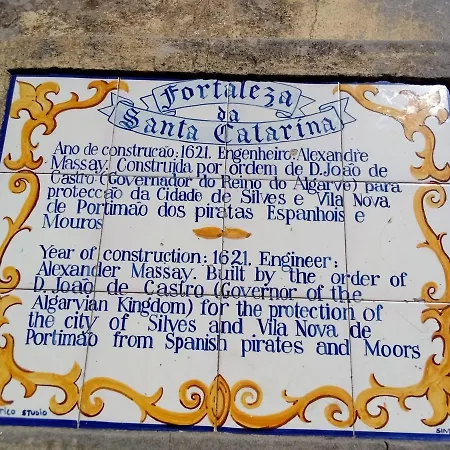 Fortaleza
da
Santa Catarina
Ano de construcao: 1621. Engenheiro: Alexandre
Massay. Construida por ordem de D. João de
Castro (Governador do Reino do Algarve) para
protecção da Cidade de Silves e Vila Nova
de Portimão dos piratas Espanhois e
Mouros
Year of construction: 1621. Engineer:
Alexander Massay. Built by the order of
D. João de Castro (Governor of the
Algarvian Kingdom) for the protection of
the city of Silves and Vila Nova de
Portimao from Spanish pirates and Moors
STUDIO